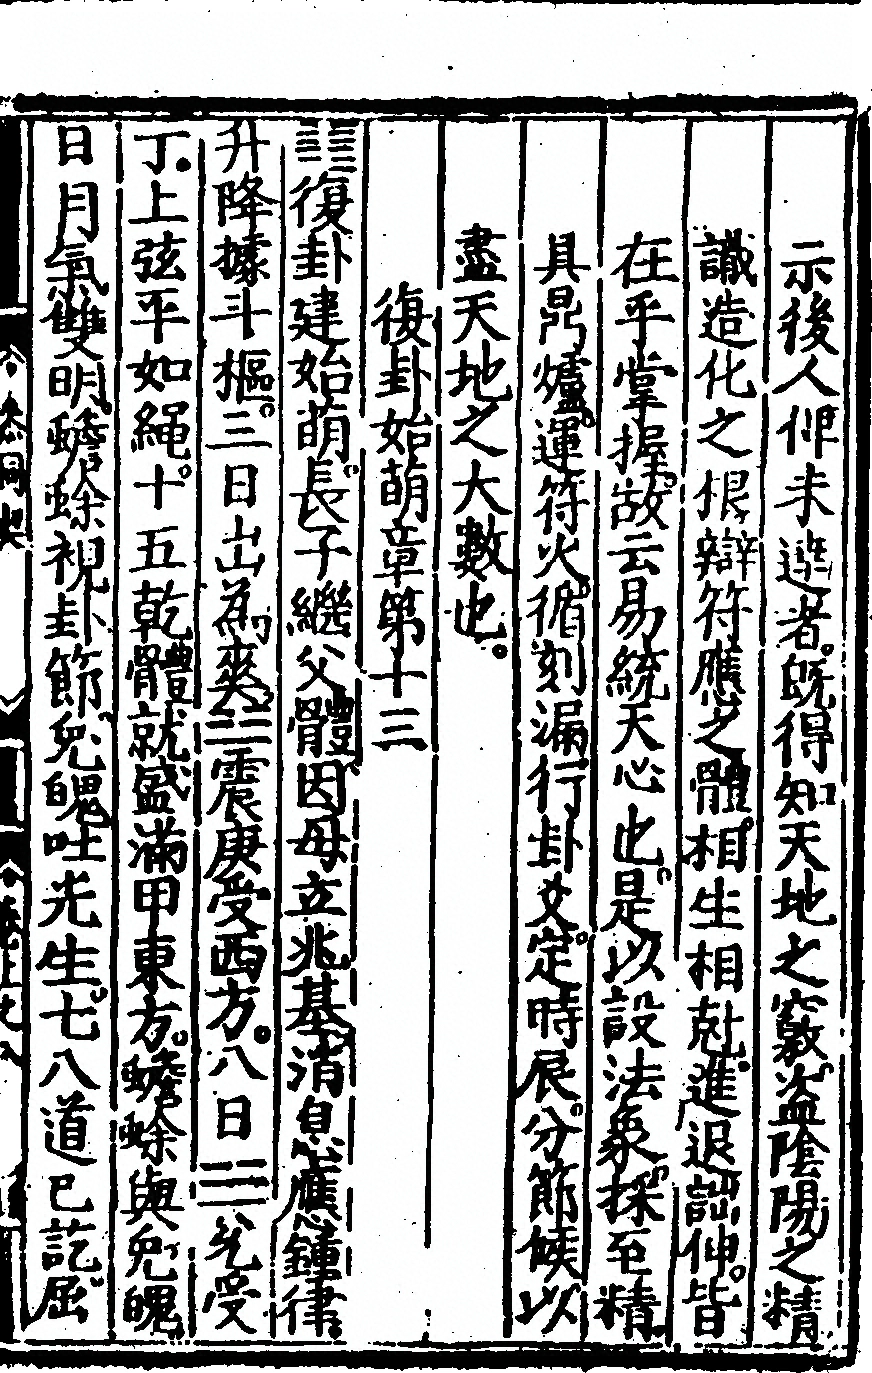 示後人俾未進者既得知天地之竅盗陰陽之精
識造化之根辯符應之體相生相尅進退詘伸皆
在乎掌握故云易統天心也是以設法象採至精
具鼎爐運符火循刻漏行卦爻定時辰分節候以
盡天地之大數也
復卦始萌章第十三
䷗復卦建始萌長子繼父體因母立兆基消息應鍾律
升降據斗樞三日出為爽☳震庚受西方八日☱兊受
丁上弦平如繩十五乾體就盛滿甲東方蟾蜍與兔魄
日月氣雙明蟾蜍視卦節兔魄吐光生七八道已訖屈
参同契
卷上